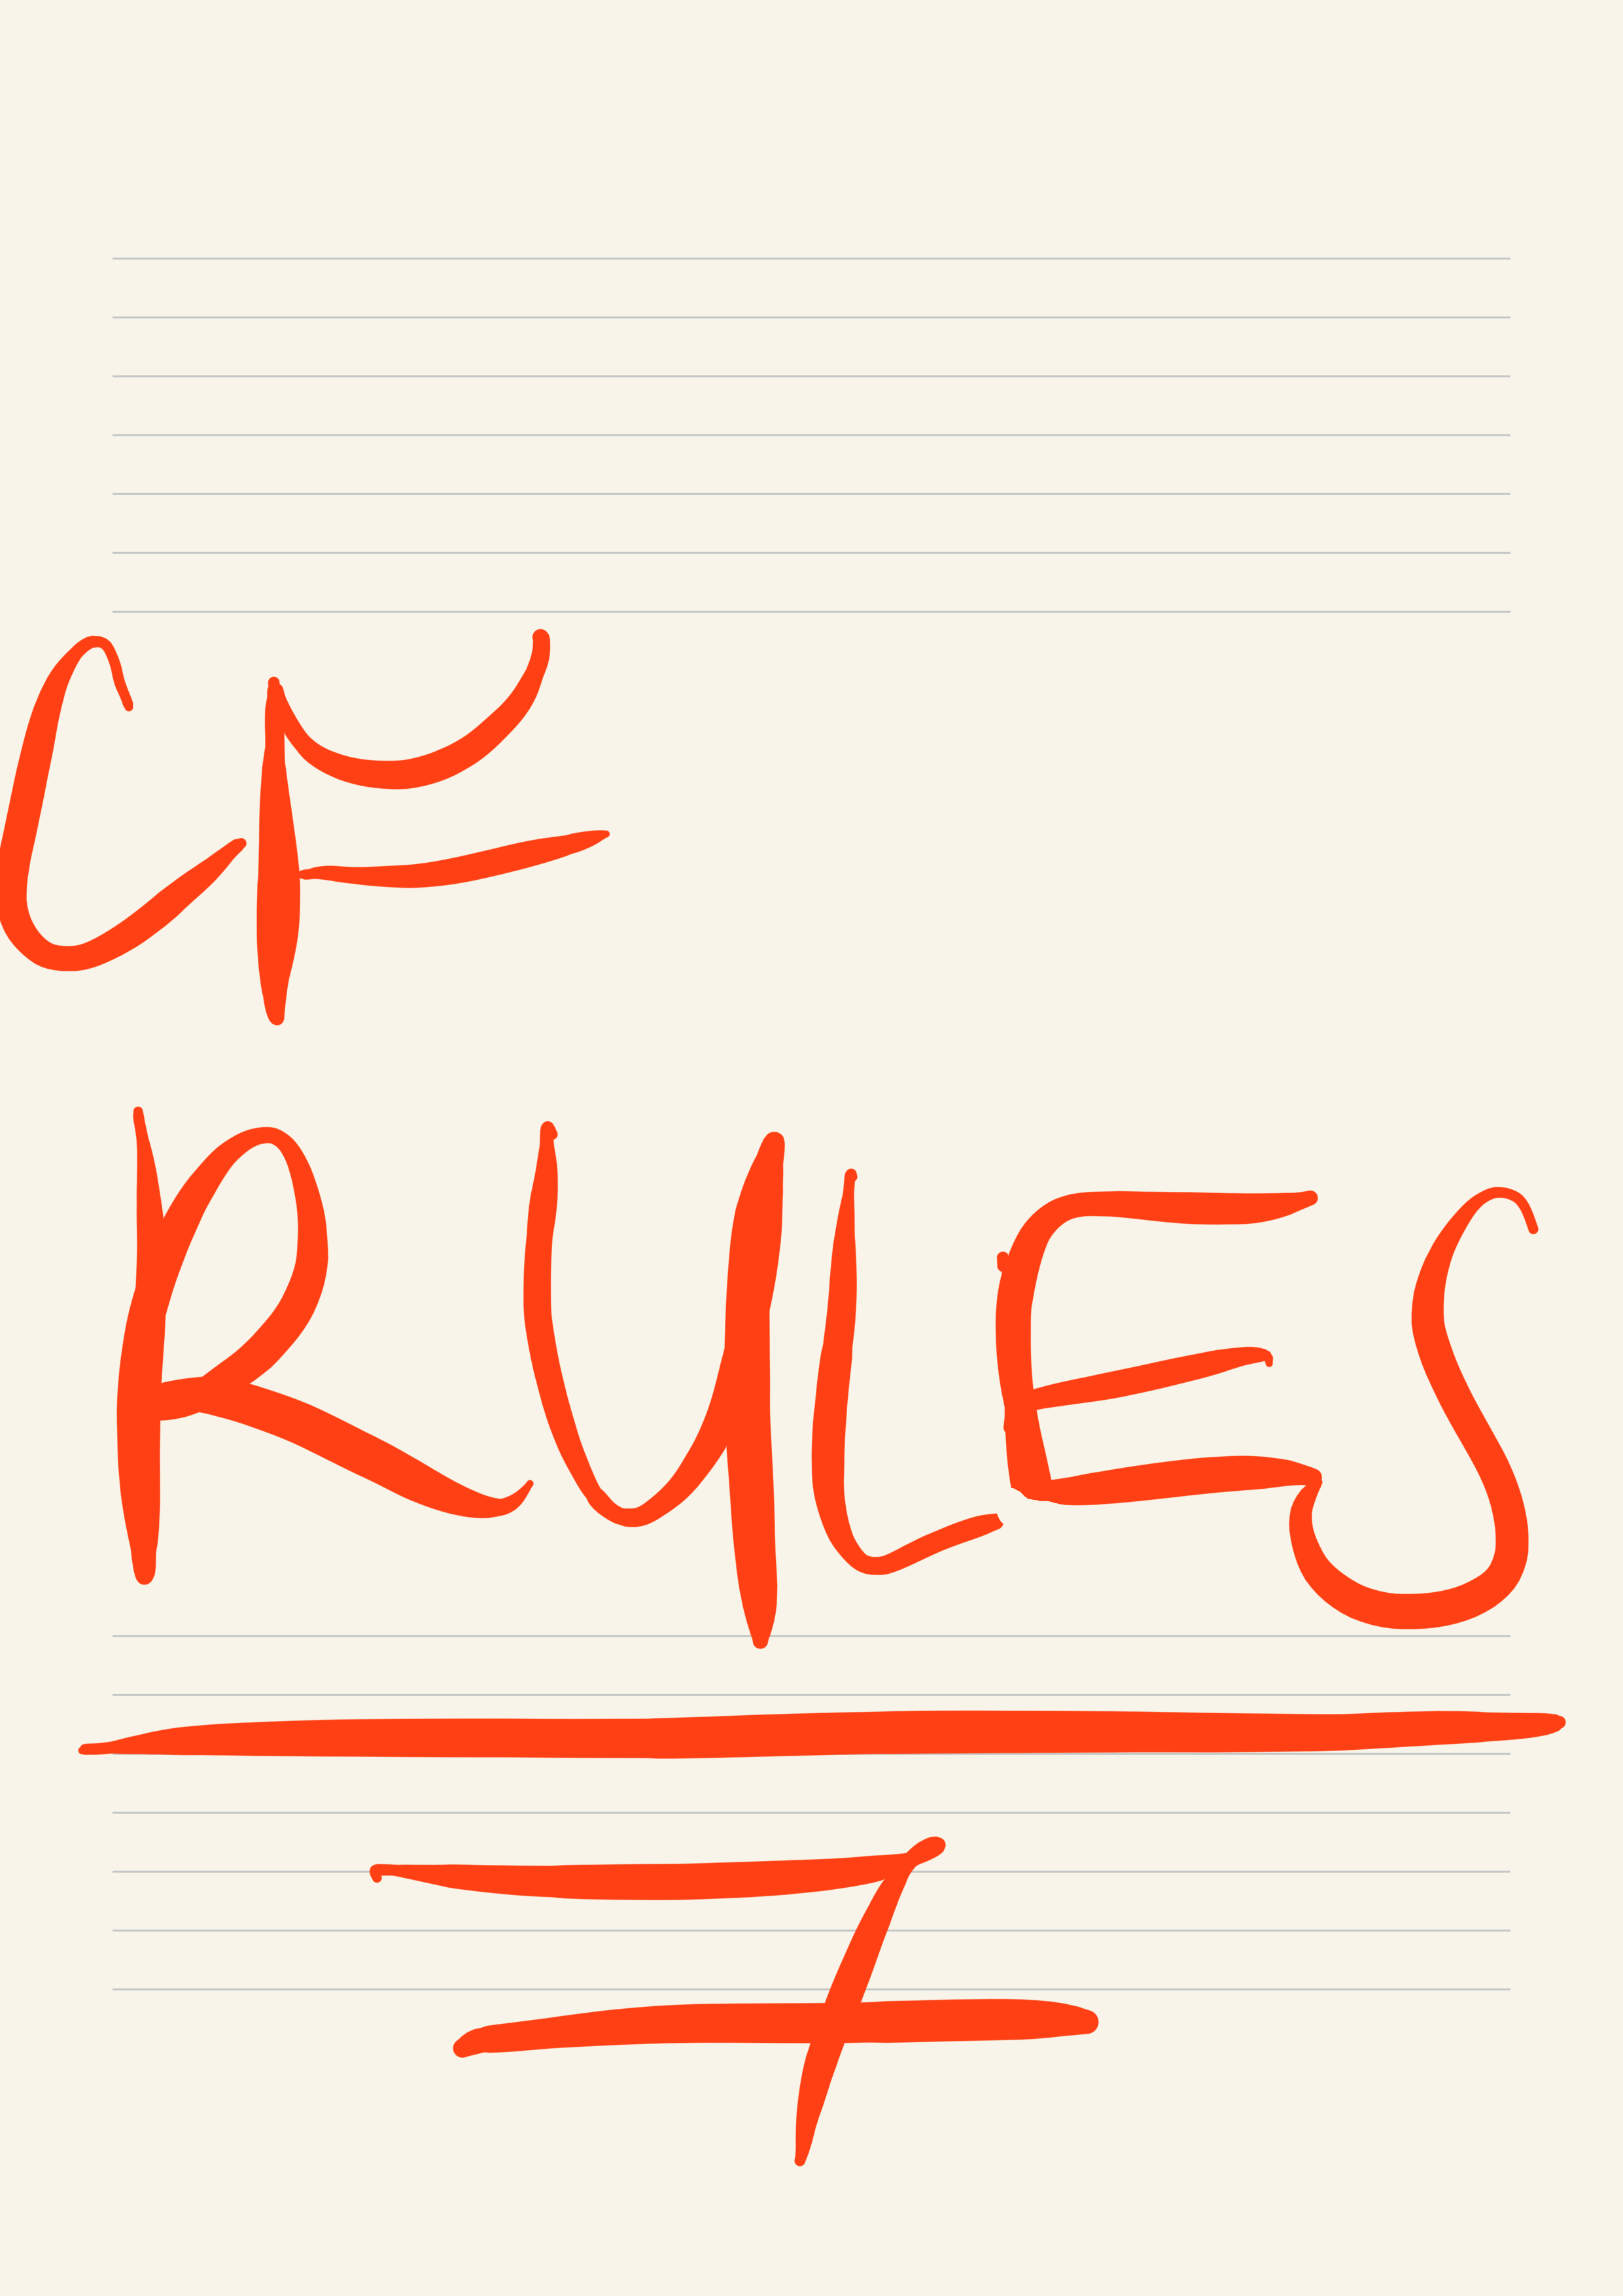 CF
RULES
7